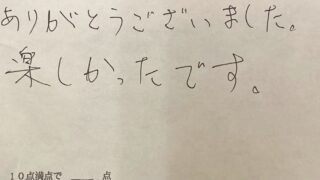 ありがとうございました。
楽しかったです。
10点満点で ＿＿ 点